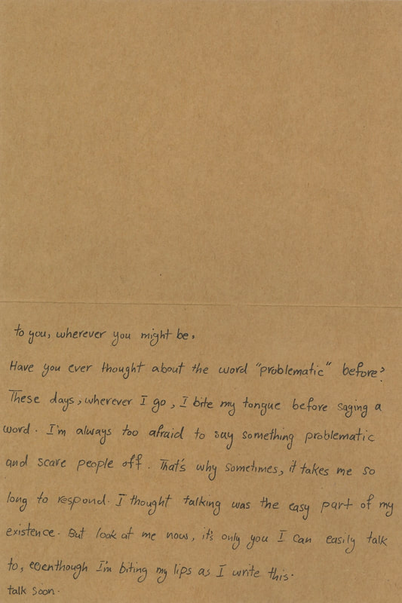 to you, wherever you might be.
Have you ever thought about the word "problematic" before?
These days, wherever I go, I bite my tongue before saying a
word. I'm always too afraid to say something problematic
and scare people off. That's why sometimes, it takes me so
long to respond. I thought talking was the easy part of my
existence. But look at me now, it's only you I can easily talk
to, eventhough I'm biting my lips as I write this.
talk soon.